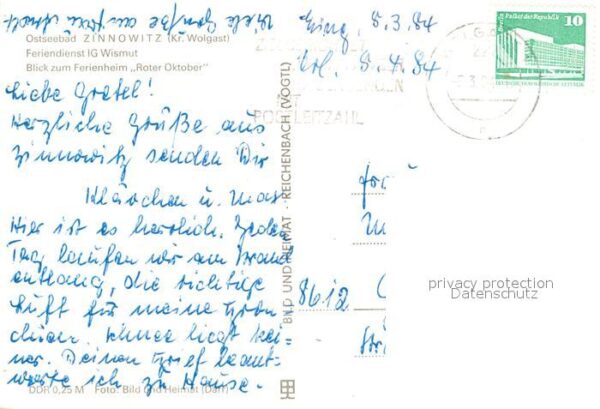 Viele Grüße an
Ostseebad ZINNOWITZ (Kr. Wolgast)
Feriendienst IG Wismut
Blick zum Ferienheim „Roter Oktober"
Liebe Gretel!
Herzliche Grüße aus
Zinnowitz senden Dir
Klärchen u. Max
Hier ist es herrlich. Jeden
Tag laufen wir am Strand
entlang, die richtige
Luft für meine Bron
chien. Schnee liegt kei-
ner. Deinen Brief beant-
worte ich zu Hause.
DDR 0,25 M Foto: Bild und Heimat (Darr)
BILD UND HEIMAT REICHENBACH (VOGTL)
Eing. 8.3.84
Erl. 8.4.84
POSTLEITZAHL
Berlin Palast der Republik
10
DEUTSCHE DEMOKRATISCHE REPUBLIK
8612
privacy protection
Datenschutz